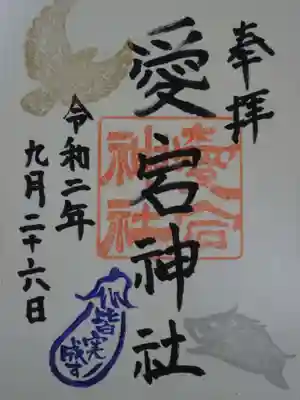 奉拝
愛宕神社
愛宕神社
令和二年
九月二十六日
皆実
成す